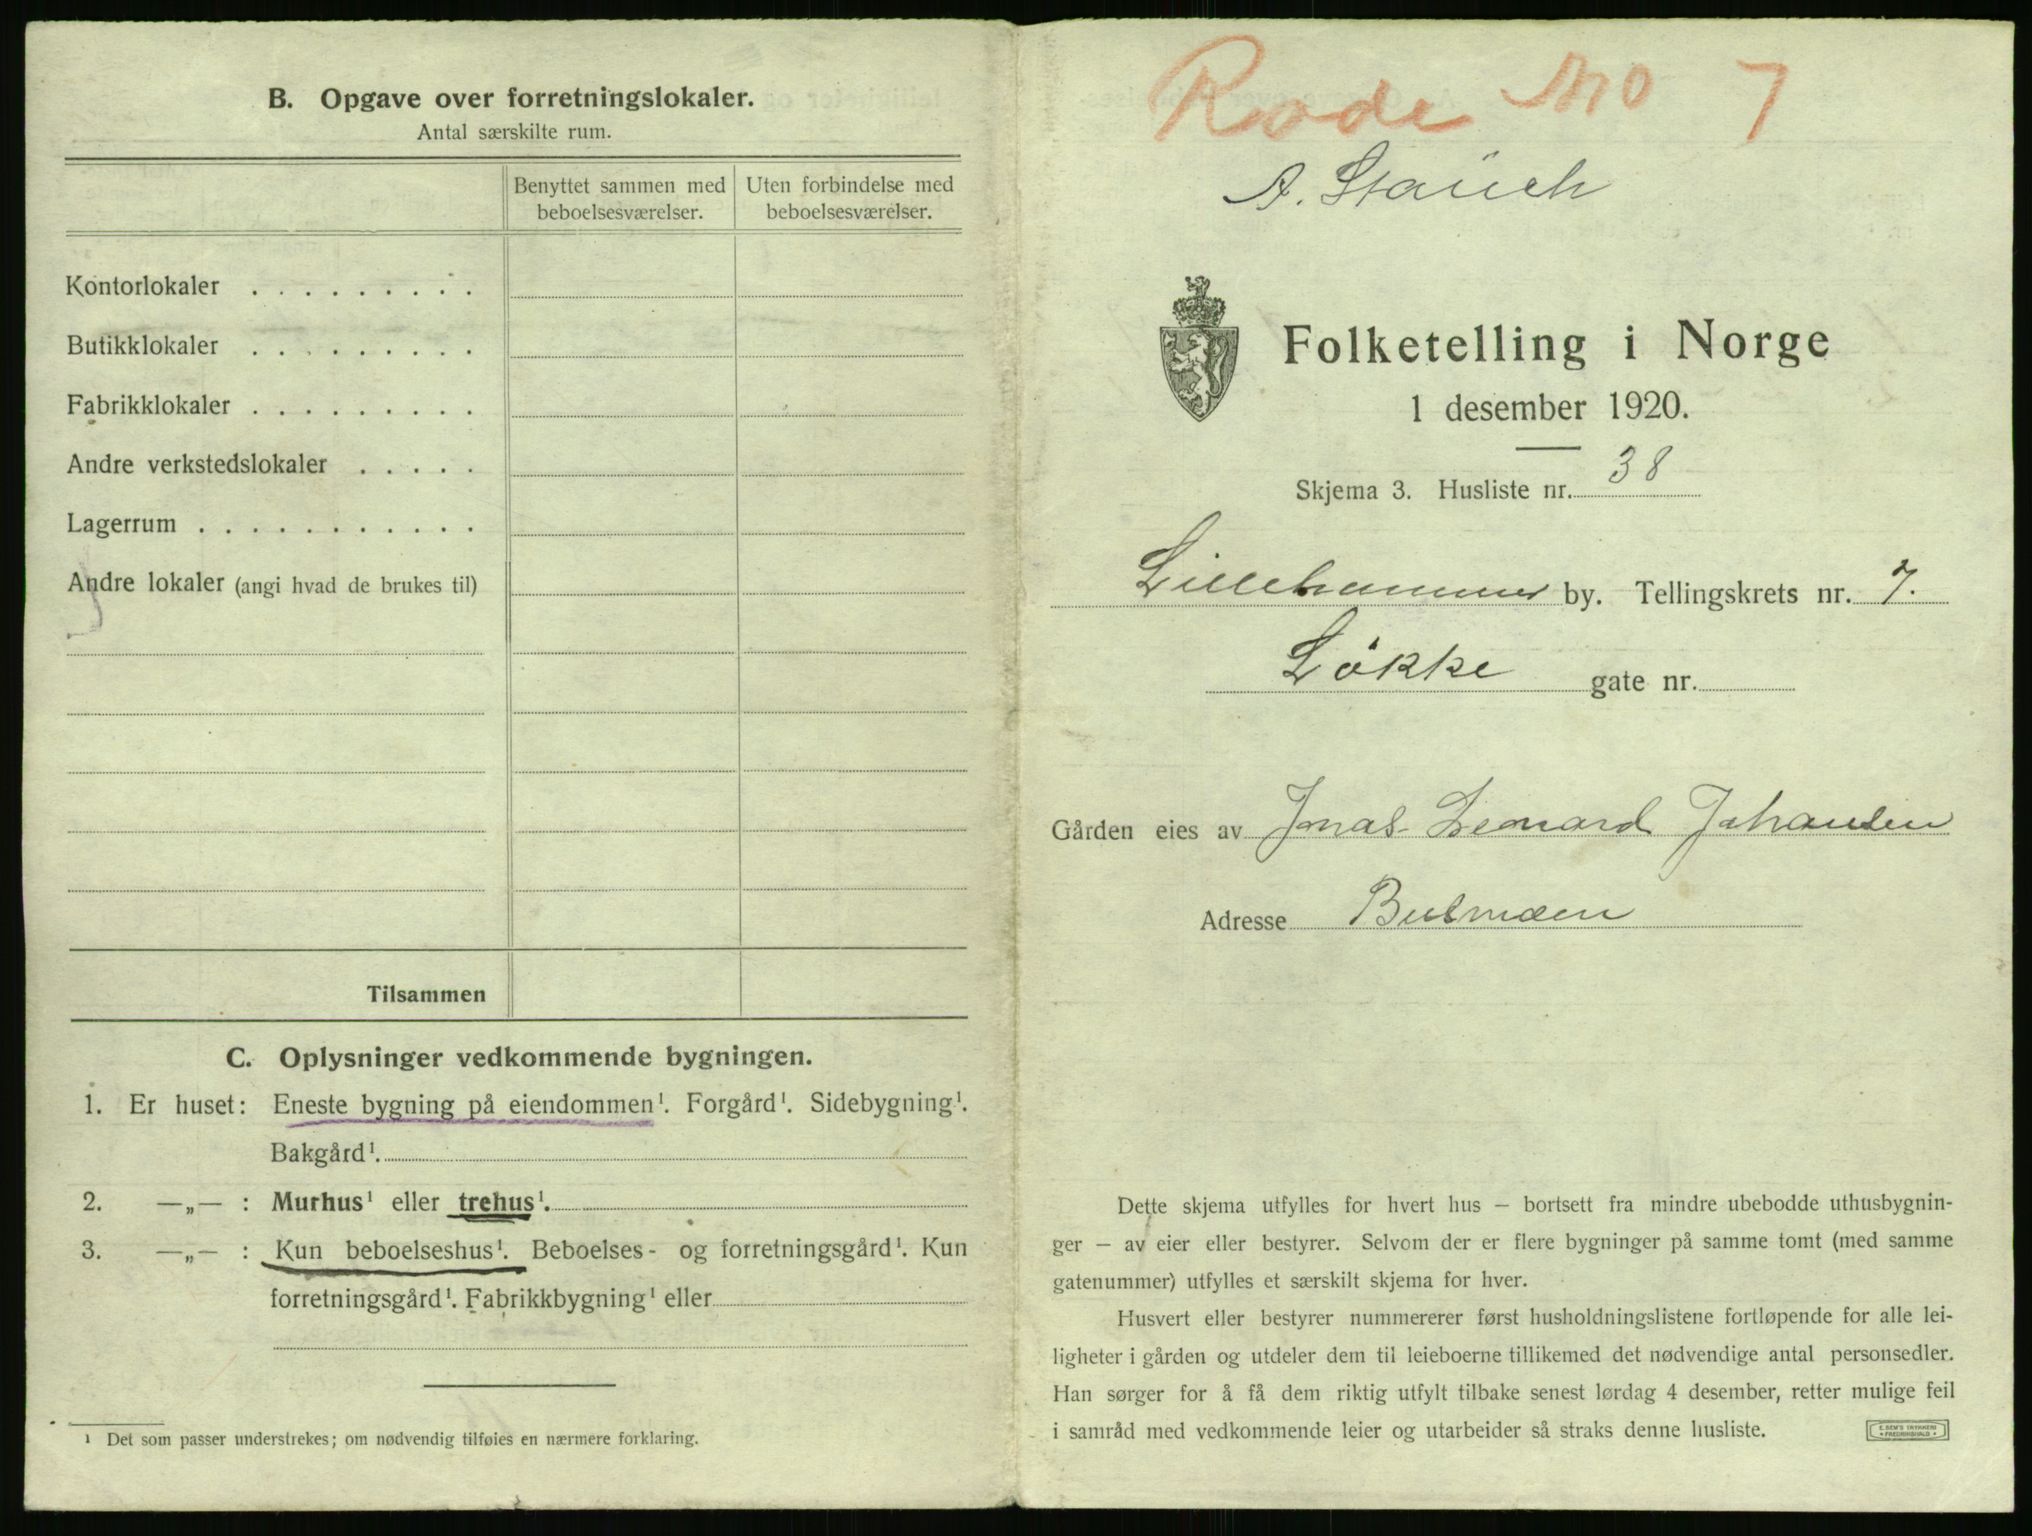 B. Opgave over forretningslokaler.
Antal særskilte rum.
Benyttet sammen med beboelsesværelser.
Uten forbindelse med beboelsesværelser.
Kontorlokaler . . . . . . . . .
Butikklokaler . . . . . . . . .
Fabrikklokaler . . . . . . . . .
Andre verkstedslokaler . . . . .
Lagerrum . . . . . . . . . . .
Andre lokaler (angi hvad de brukes til)
Tilsammen
C. Oplysninger vedkommende bygningen.
1. Er huset: Eneste bygning på eiendommen¹. Forgård¹. Sidebygning¹.
Bakgård¹.
2. —„— : Murhus¹ eller trehus¹.
3. —„— : Kun beboelseshus¹. Beboelses- og forretningsgård¹. Kun
forretningsgård¹. Fabrikkbygning¹ eller
¹ Det som passer understrekes; om nødvendig tilføies en nærmere forklaring.
Rode No 7
A. Stauch
Folketelling i Norge
1 desember 1920.
Skjema 3. Husliste nr. 38
Lillehammer by. Tellingskrets nr. 7.
Løkke gate nr.
Gården eies av Jonas Leonard Johansen
Adresse
Dette skjema utfylles for hvert hus — bortsett fra mindre ubebodde uthusbygnin-
ger — av eier eller bestyrer. Selvom der er flere bygninger på samme tomt (med samme
gatenummer) utfylles et særskilt skjema for hver.
Husvert eller bestyrer nummererer først husholdningslistene fortløpende for alle lei-
ligheter i gården og utdeler dem til leieboerne tillikemed det nødvendige antal personsedler.
Han sørger for å få dem riktig utfylt tilbake senest lørdag 4 desember, retter mulige feil
i samråd med vedkommende leier og utarbeider så straks denne husliste.
E. SEM'S TRYKKERI
• FREDRIKSHALD •